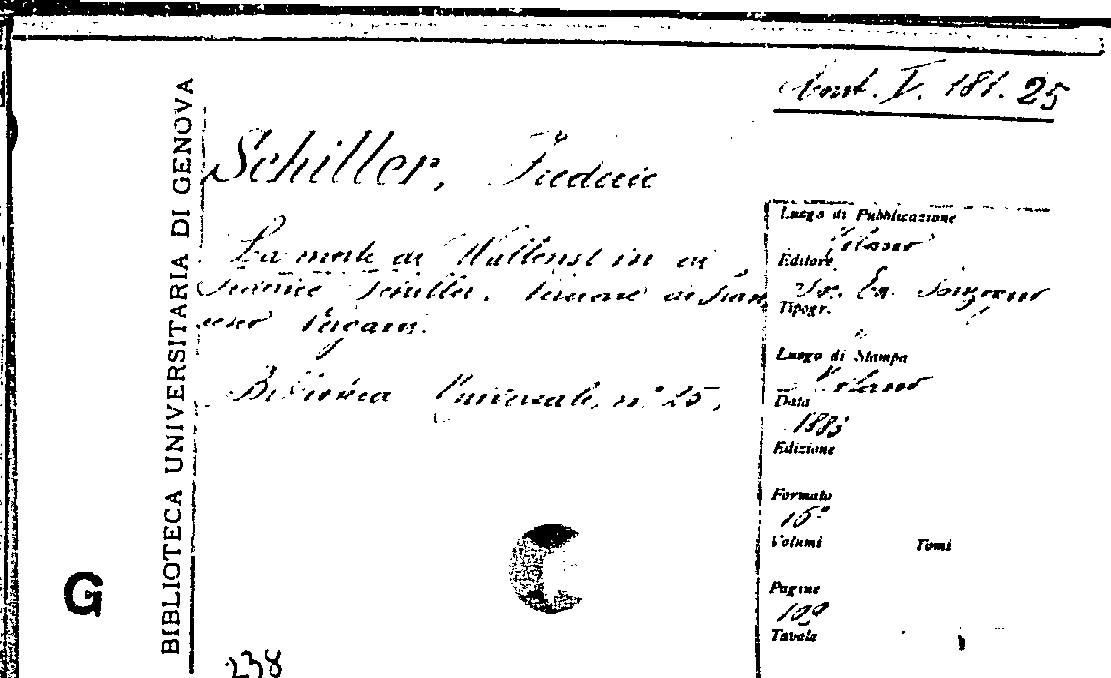 V. 181. 25
Schiller, Federic
La morte di Wallenstein di
Federico Schiller. Versione di Fran
cesco Pergami.
Biblioteca Universale, n° 25.
BIBLIOTECA UNIVERSITARIA DI GENOVA
G
238
Luogo di Pubblicazione
Milano
Editore
Soc. Ed. Sonzogno
Tipogr.
Luogo di Stampa
Milano
Data
1883
Edizione
Formato
16°
Volumi Tomi
Pagine
109
Tavole